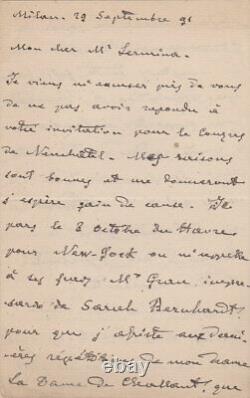 Milan. 29 Septembre 91
Mon cher Mr Lermina.
Je viens m'excuser près de vous
de ne pas avoir repondu à
votre invitation pour le Congrès
de Neuchâtel. Mes raisons
sont bonnes et me donneront
j'espère gain de cause. Je
pars le 8 Octobre du Havre
pour New-York où m'appelle
à ses frais Mr Grau, impres-
sario de Sarah Bernhardt
pour que j'assiste aux derni-
ères répétitions de mon drame
La Dame de Challant, que
© thebay.com